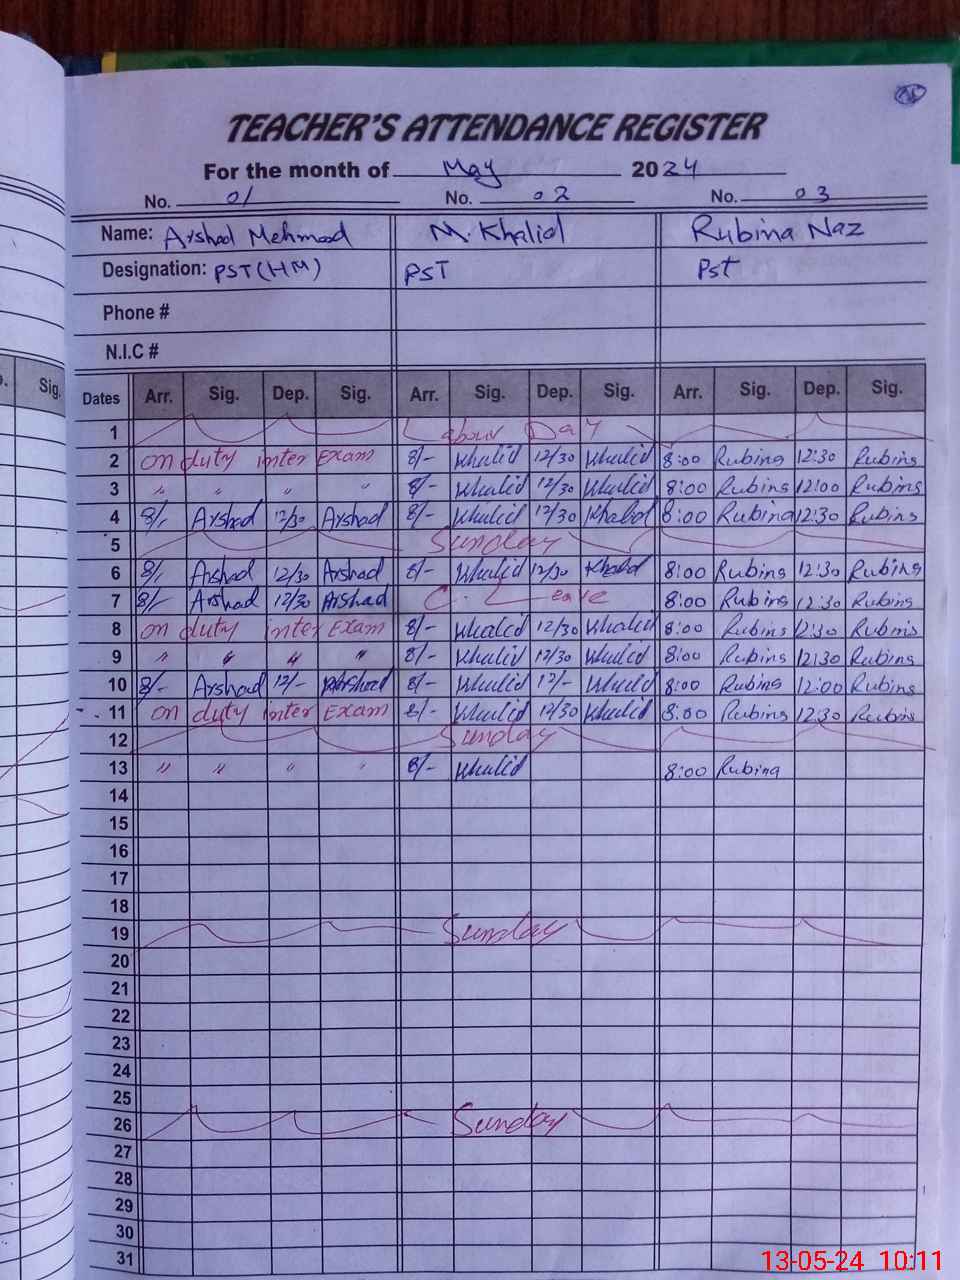 TEACHER'S ATTENDANCE REGISTER
For the month of May 2024
No. 01 No. 02 No. 03
Name: Arshad Mehmood M. Khalid Rubina Naz
Designation: PST (HM) PST Pst
Phone #
N.I.C #
Sig.
Dates Arr. Sig. Dep. Sig. Arr. Sig. Dep. Sig. Arr. Sig. Dep. Sig.
1 Labour Day
2 on duty inter Exam 8/- Khalid 12/30 Khalid 8:00 Rubina 12:30 Rubina
3 " " " " 8/- Khalid 12/30 Khalid 8:00 Rubina 12:00 Rubina
4 8/- Arshad 12/30 Arshad 8/- Khalid 12/30 Khalid 8:00 Rubina 12:30 Rubina
5 Sunday
6 8/- Arshad 12/30 Arshad 8/- Khalid 12/30 Khalid 8:00 Rubina 12:30 Rubina
7 8/- Arshad 12/30 Arshad C. Leave 8:00 Rubina 12:30 Rubina
8 on duty inter Exam 8/- Khalid 12/30 Khalid 8:00 Rubina 12:30 Rubina
9 " " " " 8/- Khalid 12/30 Khalid 8:00 Rubina 12:30 Rubina
10 8/- Arshad 12/- Arshad 8/- Khalid 12/- Khalid 8:00 Rubina 12:00 Rubina
11 on duty inter Exam 8/- Khalid 12/30 Khalid 8:00 Rubina 12:30 Rubina
12 Sunday
13 " " " " 8/- Khalid 8:00 Rubina
14
15
16
17
18
19 Sunday
20
21
22
23
24
25
26 Sunday
27
28
29
30
31
13-05-24 10:11